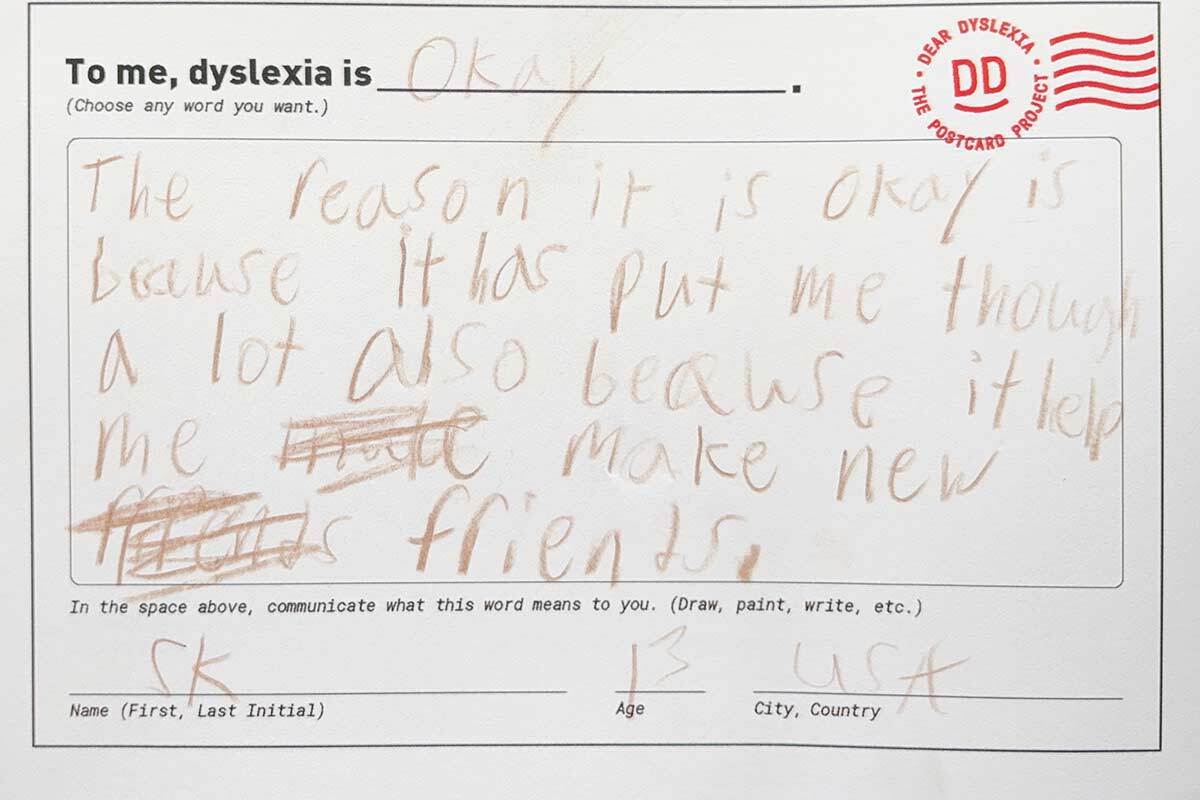 To me, dyslexia is Okay.
(Choose any word you want.)
DEAR DYSLEXIA · THE POSTCARD PROJECT ·
DD
The reason it is okay is
because it has put me though
a lot also beacause it help
me make new
friends friends.
In the space above, communicate what this word means to you. (Draw, paint, write, etc.)
SK 13 USA
Name (First, Last Initial) Age City, Country